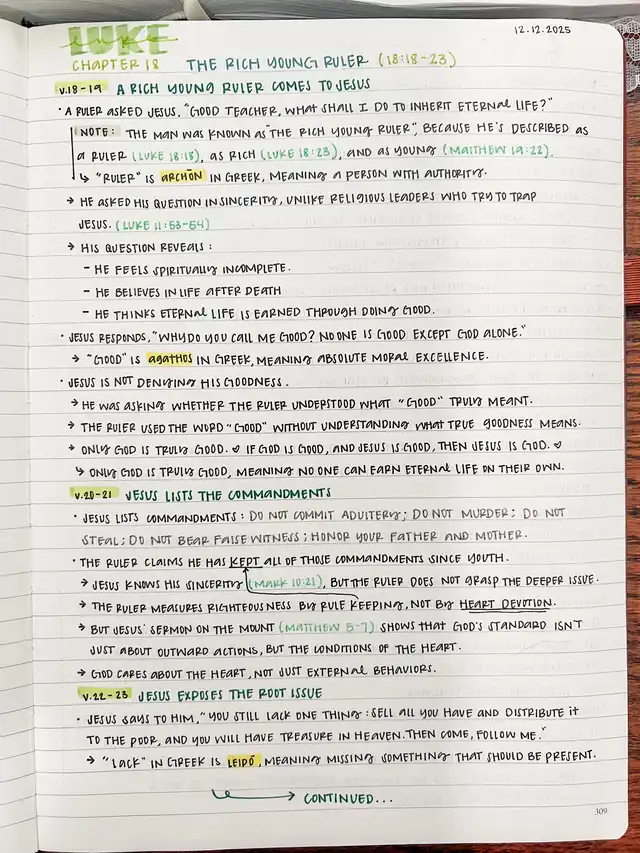 LUKE
12.12.2025
CHAPTER 18 THE RICH YOUNG RULER (18:18-23)
v.18-19 A RICH YOUNG RULER COMES TO JESUS
• A RULER ASKED JESUS, "GOOD TEACHER, WHAT SHALL I DO TO INHERIT ETERNAL LIFE?"
NOTE: THE MAN WAS KNOWN AS "THE RICH YOUNG RULER", BECAUSE HE'S DESCRIBED AS
A RULER (LUKE 18:18), AS RICH (LUKE 18:23), AND AS YOUNG (MATTHEW 19:22).
↳ "RULER" IS ARCHŌN IN GREEK, MEANING A PERSON WITH AUTHORITY.
→ HE ASKED HIS QUESTION IN SINCERITY, UNLIKE RELIGIOUS LEADERS WHO TRY TO TRAP
JESUS. (LUKE 11:53-54)
→ HIS QUESTION REVEALS:
- HE FEELS SPIRITUALLY INCOMPLETE.
- HE BELIEVES IN LIFE AFTER DEATH
- HE THINKS ETERNAL LIFE IS EARNED THROUGH DOING GOOD.
• JESUS RESPONDS, "WHY DO YOU CALL ME GOOD? NO ONE IS GOOD EXCEPT GOD ALONE."
→ "GOOD" IS AGATHOS IN GREEK, MEANING ABSOLUTE MORAL EXCELLENCE.
• JESUS IS NOT DENYING HIS GOODNESS.
→ HE WAS ASKING WHETHER THE RULER UNDERSTOOD WHAT "GOOD" TRULY MEANT.
→ THE RULER USED THE WORD "GOOD" WITHOUT UNDERSTANDING WHAT TRUE GOODNESS MEANS.
→ ONLY GOD IS TRULY GOOD. ♥ IF GOD IS GOOD, AND JESUS IS GOOD, THEN JESUS IS GOD. ♥
↳ ONLY GOD IS TRULY GOOD, MEANING NO ONE CAN EARN ETERNAL LIFE ON THEIR OWN.
v.20-21 JESUS LISTS THE COMMANDMENTS
• JESUS LISTS COMMANDMENTS: DO NOT COMMIT ADULTERY; DO NOT MURDER; DO NOT
STEAL; DO NOT BEAR FALSE WITNESS; HONOR YOUR FATHER AND MOTHER.
• THE RULER CLAIMS HE HAS KEPT ALL OF THOSE COMMANDMENTS SINCE YOUTH.
→ JESUS KNOWS HIS SINCERITY (MARK 10:21), BUT THE RULER DOES NOT GRASP THE DEEPER ISSUE.
→ THE RULER MEASURES RIGHTEOUSNESS BY RULE KEEPING, NOT BY HEART DEVOTION.
→ BUT JESUS' SERMON ON THE MOUNT (MATTHEW 5-7) SHOWS THAT GOD'S STANDARD ISN'T
JUST ABOUT OUTWARD ACTIONS, BUT THE CONDITIONS OF THE HEART.
→ GOD CARES ABOUT THE HEART, NOT JUST EXTERNAL BEHAVIORS.
v.22-23 JESUS EXPOSES THE ROOT ISSUE
• JESUS SAYS TO HIM, "YOU STILL LACK ONE THING: SELL ALL YOU HAVE AND DISTRIBUTE IT
TO THE POOR, AND YOU WILL HAVE TREASURE IN HEAVEN. THEN COME, FOLLOW ME."
→ "LACK" IN GREEK IS LEIPŌ, MEANING MISSING SOMETHING THAT SHOULD BE PRESENT.
→ CONTINUED...
309